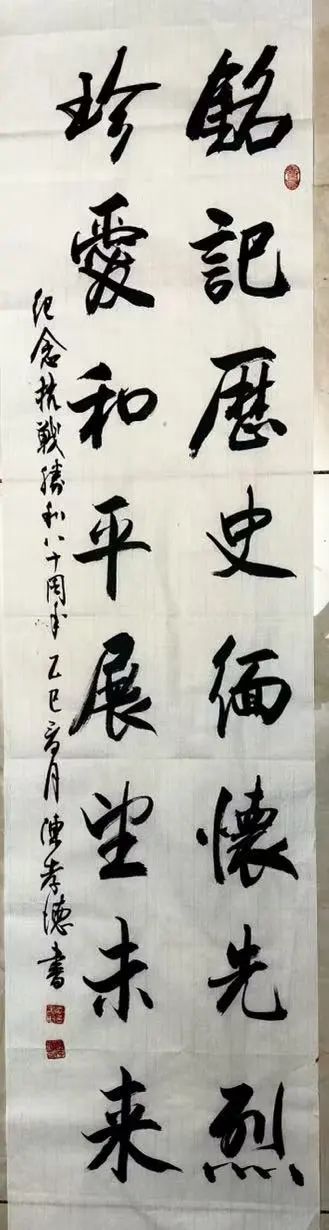 銘記歷史缅懷先烈
珍愛和平展望未来
纪念抗戰勝利八十周年 乙巳 月 陳孝德書